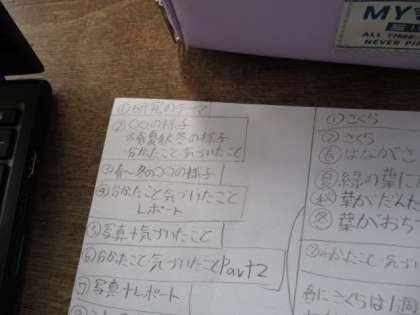 MY
ALL TIME
NEVER
①研究のテーマ
②〇〇の様子
春夏秋冬の様子
分かったこと 気づいたこと
③春〜冬の〇〇の様子
④分かったこと 気づいたこと
レポート
⑤写真+気づいたこと
⑥分かったこと 気づいたことPart2
⑦写真+レポート
①さくら
②さくら
春はながさ
夏緑の葉に
秋葉がだんた
冬葉がおち
③分かったこと 気づ
春にさくらは1週